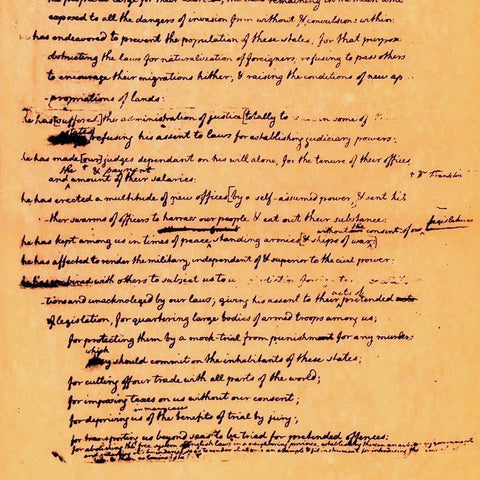 exposed to all the dangers of invasion from without & convulsions within:
he has endeavored to prevent the population of these states, for that purpose
obstructing the laws for naturalization of foreigners, refusing to pass others
to encourage their migrations hither; & raising the conditions of new ap-
-propriations of lands:
he has [suffered] the administration of justice [totally to in some of
states
refusing his assent to laws for establishing judiciary powers:
he has made [our] judges dependant on his will alone, for the tenure of their offices,
the + & payment
+ Dr Franklin
and amount of their salaries:
he has erected a multitude of new offices [by a self-assumed power, & sent hi
-ther swarms of officers to harrass our people & eat out their substance:
without the consent of our legislatures
he has kept among us in times of peace, standing armies [& ships of war:]
he has affected to render the military, independent of & superior to the civil power:
he has combined with others to subject us to a
acts of
-tions and unacknoleged by our laws; giving his assent to their pretended acts
of legislation, for quartering large bodies of armed troops among us;
for protecting them by a mock-trial from punishment for any murders
which
they should commit on the inhabitants of these states;
for cutting off our trade with all parts of the world;
for imposing taxes on us without our consent;
in many cases
for depriving us of the benefits of trial by jury;
for transporting us beyond seas to be tried for pretended offences:
for abolishing the free system of English laws in a neighboring province, establishing therein an arbitrary government